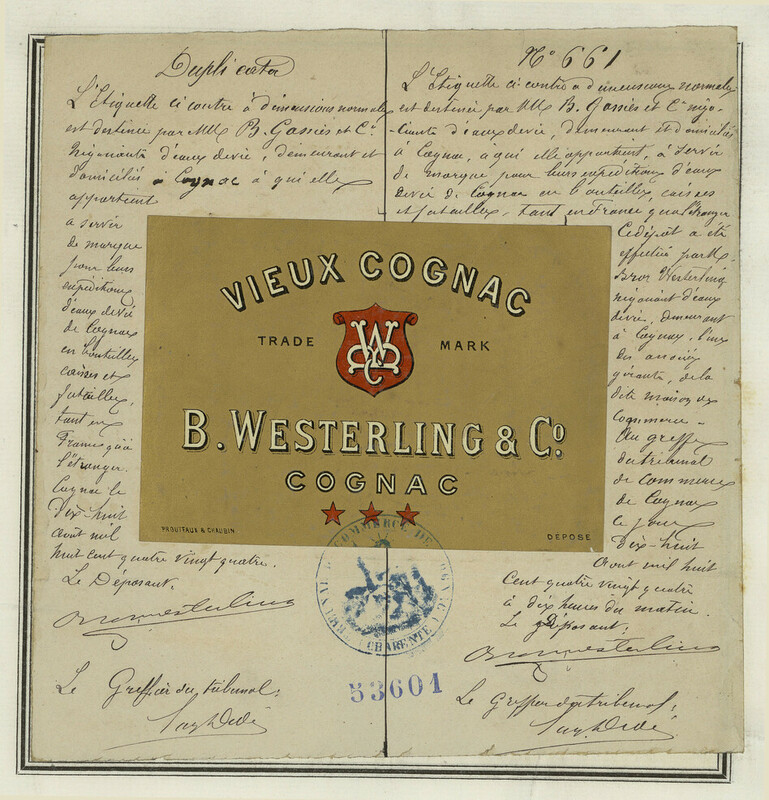 Duplicata
L'Etiquette ci contre à dimensions normales
est destinée par MM B. Gassies et Cie
Négociants d'eaux devie, demeurant et
domiciliés à Cognac à qui elle
appartient
à servir
de marque
pour leurs
expéditions
d'eaux devie
de Cognac
en bouteilles
caisses et
futailles,
tant en
France qu'à
l'étranger.
Cognac le
dix-huit
août mil
huit cent quatre vingt quatre.
Le Déposant.
Le Greffier du tribunal:
No 661
L'Etiquette ci contre à dimensions normales
est destinée par MM B. Gassies et Cie négo-
ciants d'eaux devie, demeurant et domiciliés
à Cognac, à qui elle appartient, à servir
de marque pour leurs expéditions d'eaux
devie de Cognac en bouteilles, caisses
et futailles, tant en France qu'à l'étranger
Ce dépôt a été
effectué par M.
Bror Westerling
négociant d'eaux
devie, demeurant
à Cognac, l'un
des associés
gérants, de la
dite maison de
commerce.
Au greffe
du tribunal
de Commerce
de Cognac
ce jour
dix-huit
Aout mil huit
Cent quatre vingt quatre
à dix heures du matin.
Le Déposant:
Le Greffier du tribunal:
VIEUX COGNAC
TRADE MARK
WB&C
B. WESTERLING & Co
COGNAC
PROUTEAUX & CHAUBIN
DEPOSE
COMMERCE DE COGNAC
CHARENTE
53601